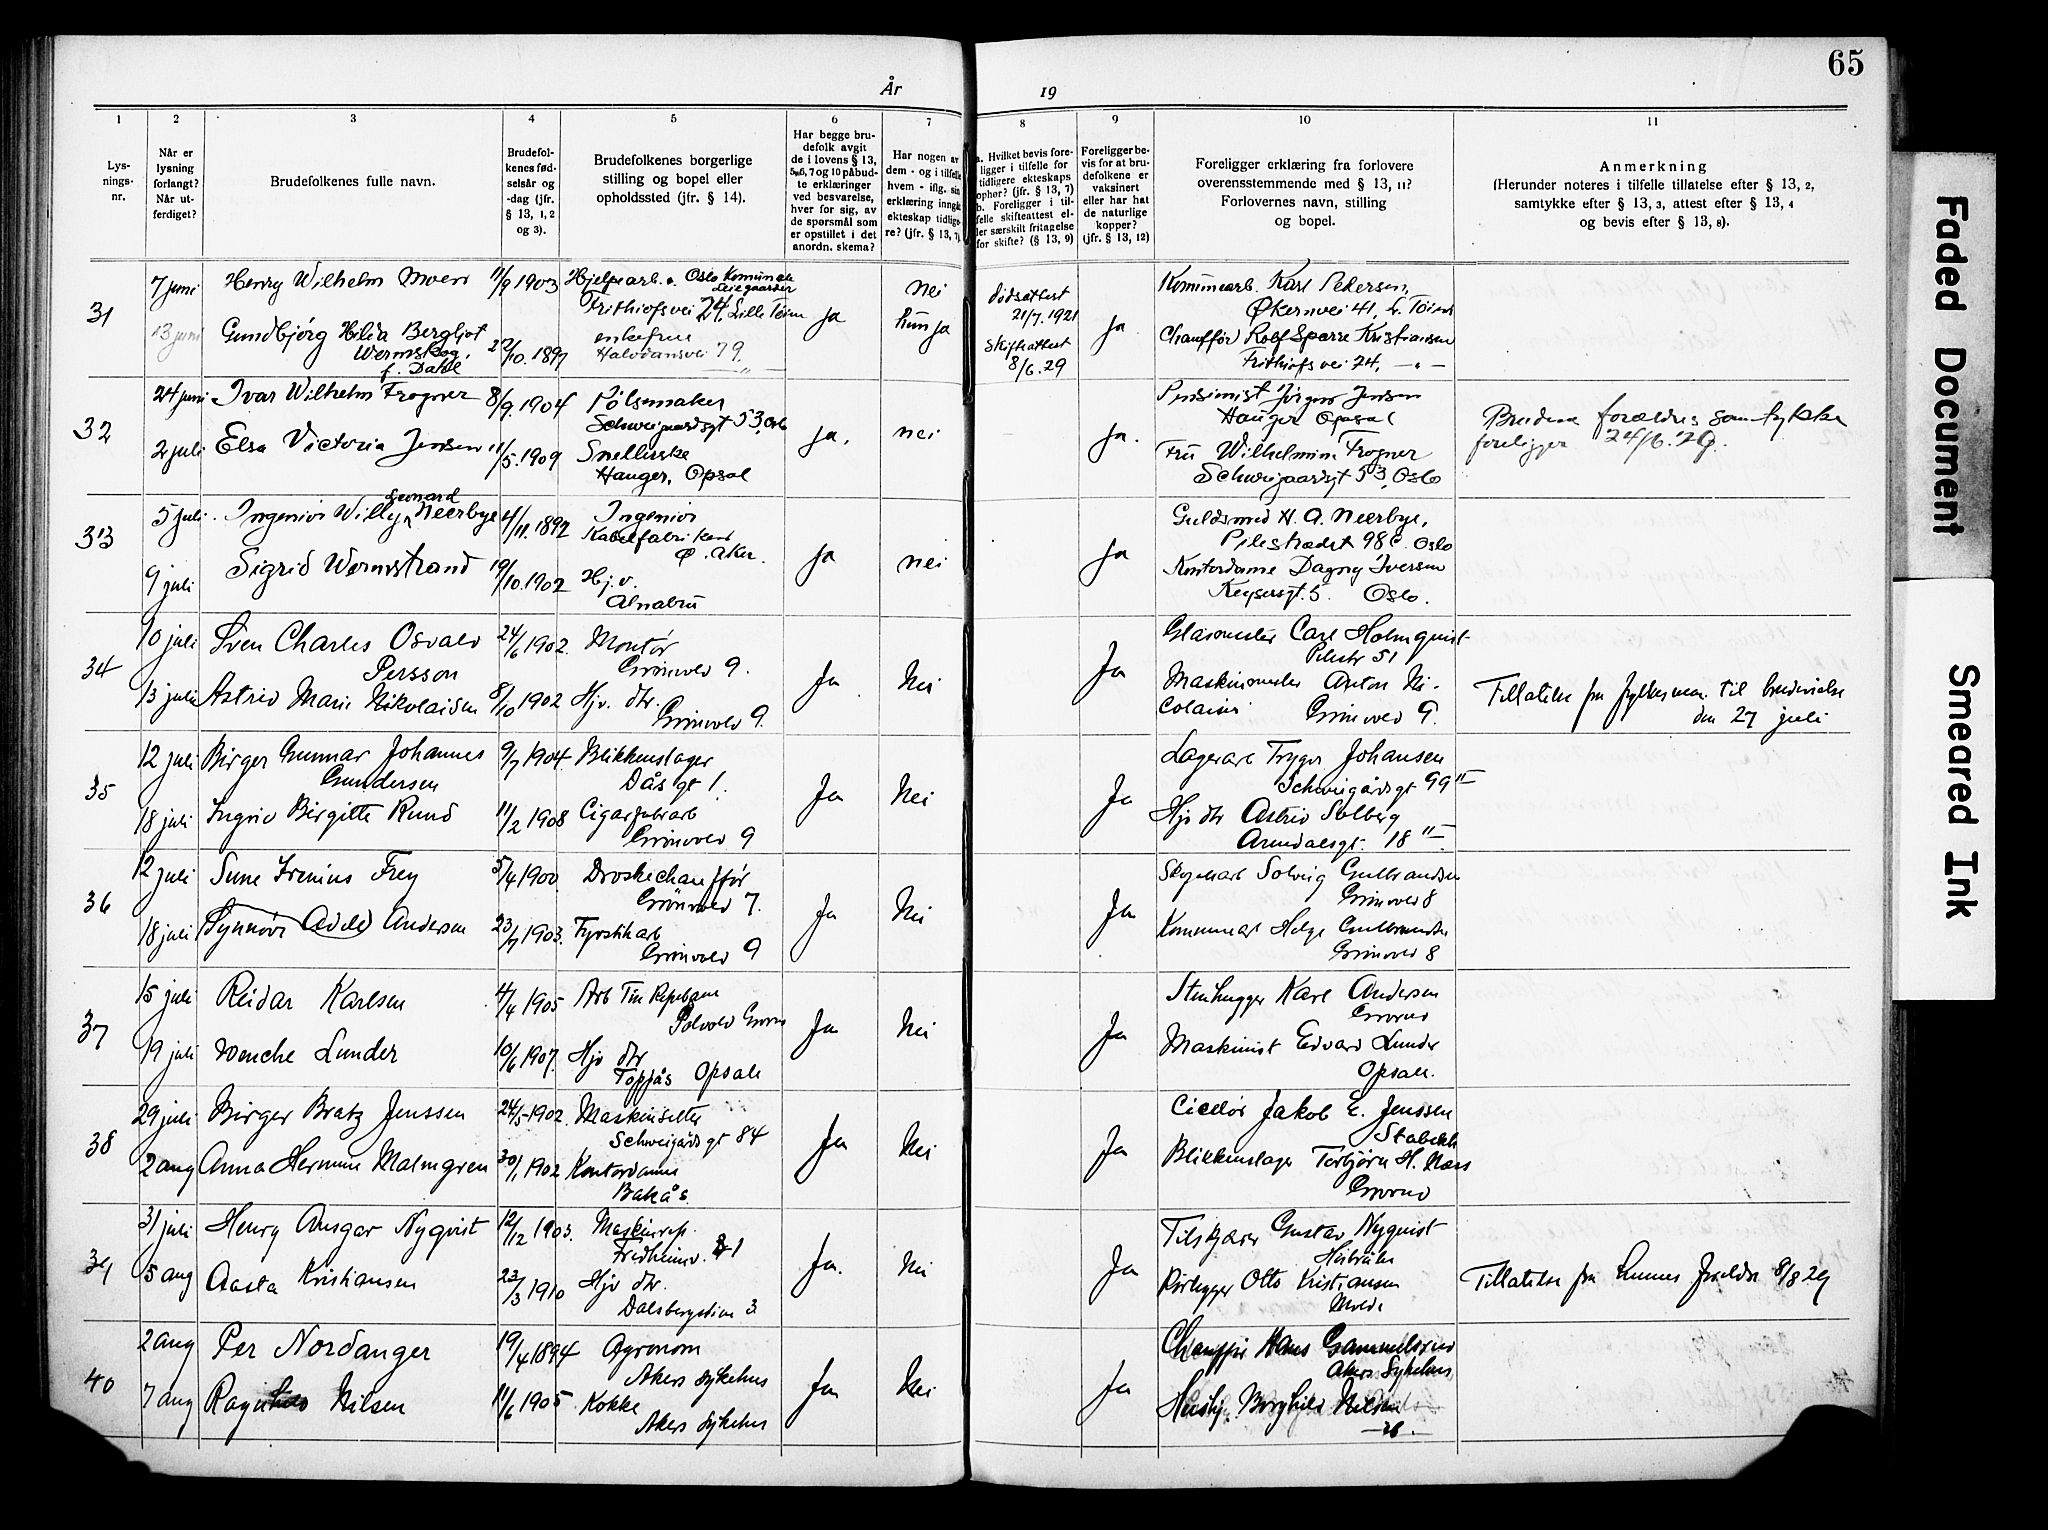 65
År 19
1 2 3 4 5 6 7 8 9 10 11
Lys-
nings-
nr.
Når er
lysning
forlangt?
Når ut-
ferdiget?
Brudefolkenes fulle navn.
Brudefol-
kenes fød-
selsår og
-dag (jfr.
§ 13, 1, 2
og 3).
Brudefolkenes borgerlige
stilling og bopel eller
opholdssted (jfr. § 14).
Har begge bru-
defolk avgit
de i lovens § 13,
5, 6, 7 og 10 påbud-
te erklæringer
ved besvarelse,
hver for sig, av
de spørsmål som
er opstillet i det
anordn. skema?
Har nogen av
dem - og i tilfelle
hvem - iflg. sin
erklæring inngått
ekteskap tidlige-
re? (jfr. § 13, 7)
a. Hvilket bevis fore-
ligger i tilfelle for
tidligere ekteskaps
ophør? (jfr. § 13, 7)
b. Foreligger i til-
felle skifteattest el-
ler særskilt fritagelse
for skifte? (§ 13, 9)
Foreligger be-
vis for at bru-
defolkene er
vaksinert
eller har hat
de naturlige
kopper?
(jfr. § 13, 12)
Foreligger erklæring fra forlovere
overensstemmende med § 13, 11?
Forlovernes navn, stilling
og bopel.
Anmerkning
(Herunder noteres i tilfelle tillatelse efter § 13, 2,
samtykke efter § 13, 3, attest efter § 13, 4
og bevis efter § 13, 8).
31
7 juni
13 juni
Henry Wilhelm Moen
Gundbjørg Hilda Bergljot
Wormskog,
f. Dahl
11/9 1903
22/10. 1897
Hjelpearb. v. Oslo Komunale
Leiegaarder
Frithiofsvei 24, Lille Tøien
enkefrue
Halvdansvei 79.
ja
nei
hun ja
dødsattest
21/7. 1921
Skifteattest
8/6. 29
ja
Komunearb. Karl Pedersen,
Økernvei 41, L. Tøien
Chauffør Rolf Sparre Kristiansen
Frithiofsvei 24, — „ —
32
24 juni
2 juli
Ivar Wilhelm Frogner
Elsa Victoria Jensen
8/9. 1904
11/5. 1909
Pølsemaker
Schweigaardsgt 53, Oslo
Snelliske
Hauger, Opsal
ja.
nei
ja.
Pensionist Jørgen Jensen
Hauger Opsal
Fru Wilhelmine Frogner
Schweigaardsgt 53, Oslo
Brudens forældres samtykke
foreligger 24/6. 29.
33
5 juli.
9 juli
Ingeniør Willy Leonard Neerbye
Sigrid Wormstrand
4/11. 1892
19/10. 1902
Ingeniør
Kabelfabrikken
Ø. Aker.
Hj. v.
Alnabru
ja
nei
ja
Guldsmed H. A. Neerbye,
Pilestrædet 98 c. Oslo
Kontordame Dagny Iversen
Keysersgt. 5. Oslo.
34
10 juli
13 juli
Sven Charles Osvald
Persson
Astrid Marie Nikolaisen
24/6 1902.
8/10 1902
Montør
Grønvold 9.
Hjv. dtr.
Grønvold 9.
Ja
Nei
Ja
Glasmester Carl Holmquist
Pilestr 51
Maskinmester Anton Ni-
colaisen Grønvold 9.
Tillatelse fra fylkesman. til brudevielse
den 27 juli
35
12 juli
18 juli
Birger Gunnar Johannes
Gundersen
Ingrid Birgitte Ruud
9/7 1904.
11/2 1908
Blikkenslager
Dåsgt 1.
Cigarfabrarb
Grønvold 9
Ja
Nei
Ja
Lagerarb Trygve Johansen
Schweigårdsgt 99 II
Hjv dtr Astrid Solberg
Arendalsgt. 18 II
36
12 juli
18 juli
Sune Irenius Frey
Synnøve Adele Andersen
5/4 1900
23/7 1903.
Droskechauffør
Grønvold 7.
Fyrstikarb
Grønvold 9
Ja
Nei
Ja
Solveig Gulbrandsen
Grønvold 8
Kommunearb Helge Gulbrandsen
Grønvold 8
37
15 juli
19 juli
Reidar Karlsen
Wenche Lunder
4/4 1905
10/6 1907.
Arb Tin Repebane
Grorud
Hjv dtr
Toppås Opsal
Ja
Nei
Ja
Stenhugger Karl Andersen
Grorud
Maskinist Edvard Lunder
Opsal.
38
29 juli
2 aug
Birger Bratz Jenssen
Anna Hermine Malmgren
24/5 1902.
30/1 1902
Maskinsetter
Schweigårdsgt 84
Kontordame
Bakås
Ja
Nei
Ja
Cicelør Jakob E. Jenssen
Stabekk
Blikkenslager Torbjørn H. Næss
Grorud
39
31 juli
5 aug
Henry Ansgar Nyqvist
Aasta Kristiansen
12/12 1903.
23/3 1910
Maskinrep.
Fredheimv. 1
Hjv dtr.
Dalsbergstien 3
Ja.
Nei
Ja
Tilskjærer Gustav Nyquist
Rørlegger Otto Kristiansen
Molde
Tillatelse fra hennes foreldre 8/8 29
40
2 aug
7 aug
Per Nordanger
Ragnhild Nilsen
19/4 1894
11/6 1905
Agronom
Akers sykehus
Kokke
Akers sykehus
Ja
Nei
Ja
Chauffør Hans Gammelsrud
Akers Sykehus
Hushj. Borghild Nilsen
— " —.
Faded Document
Smeared Ink